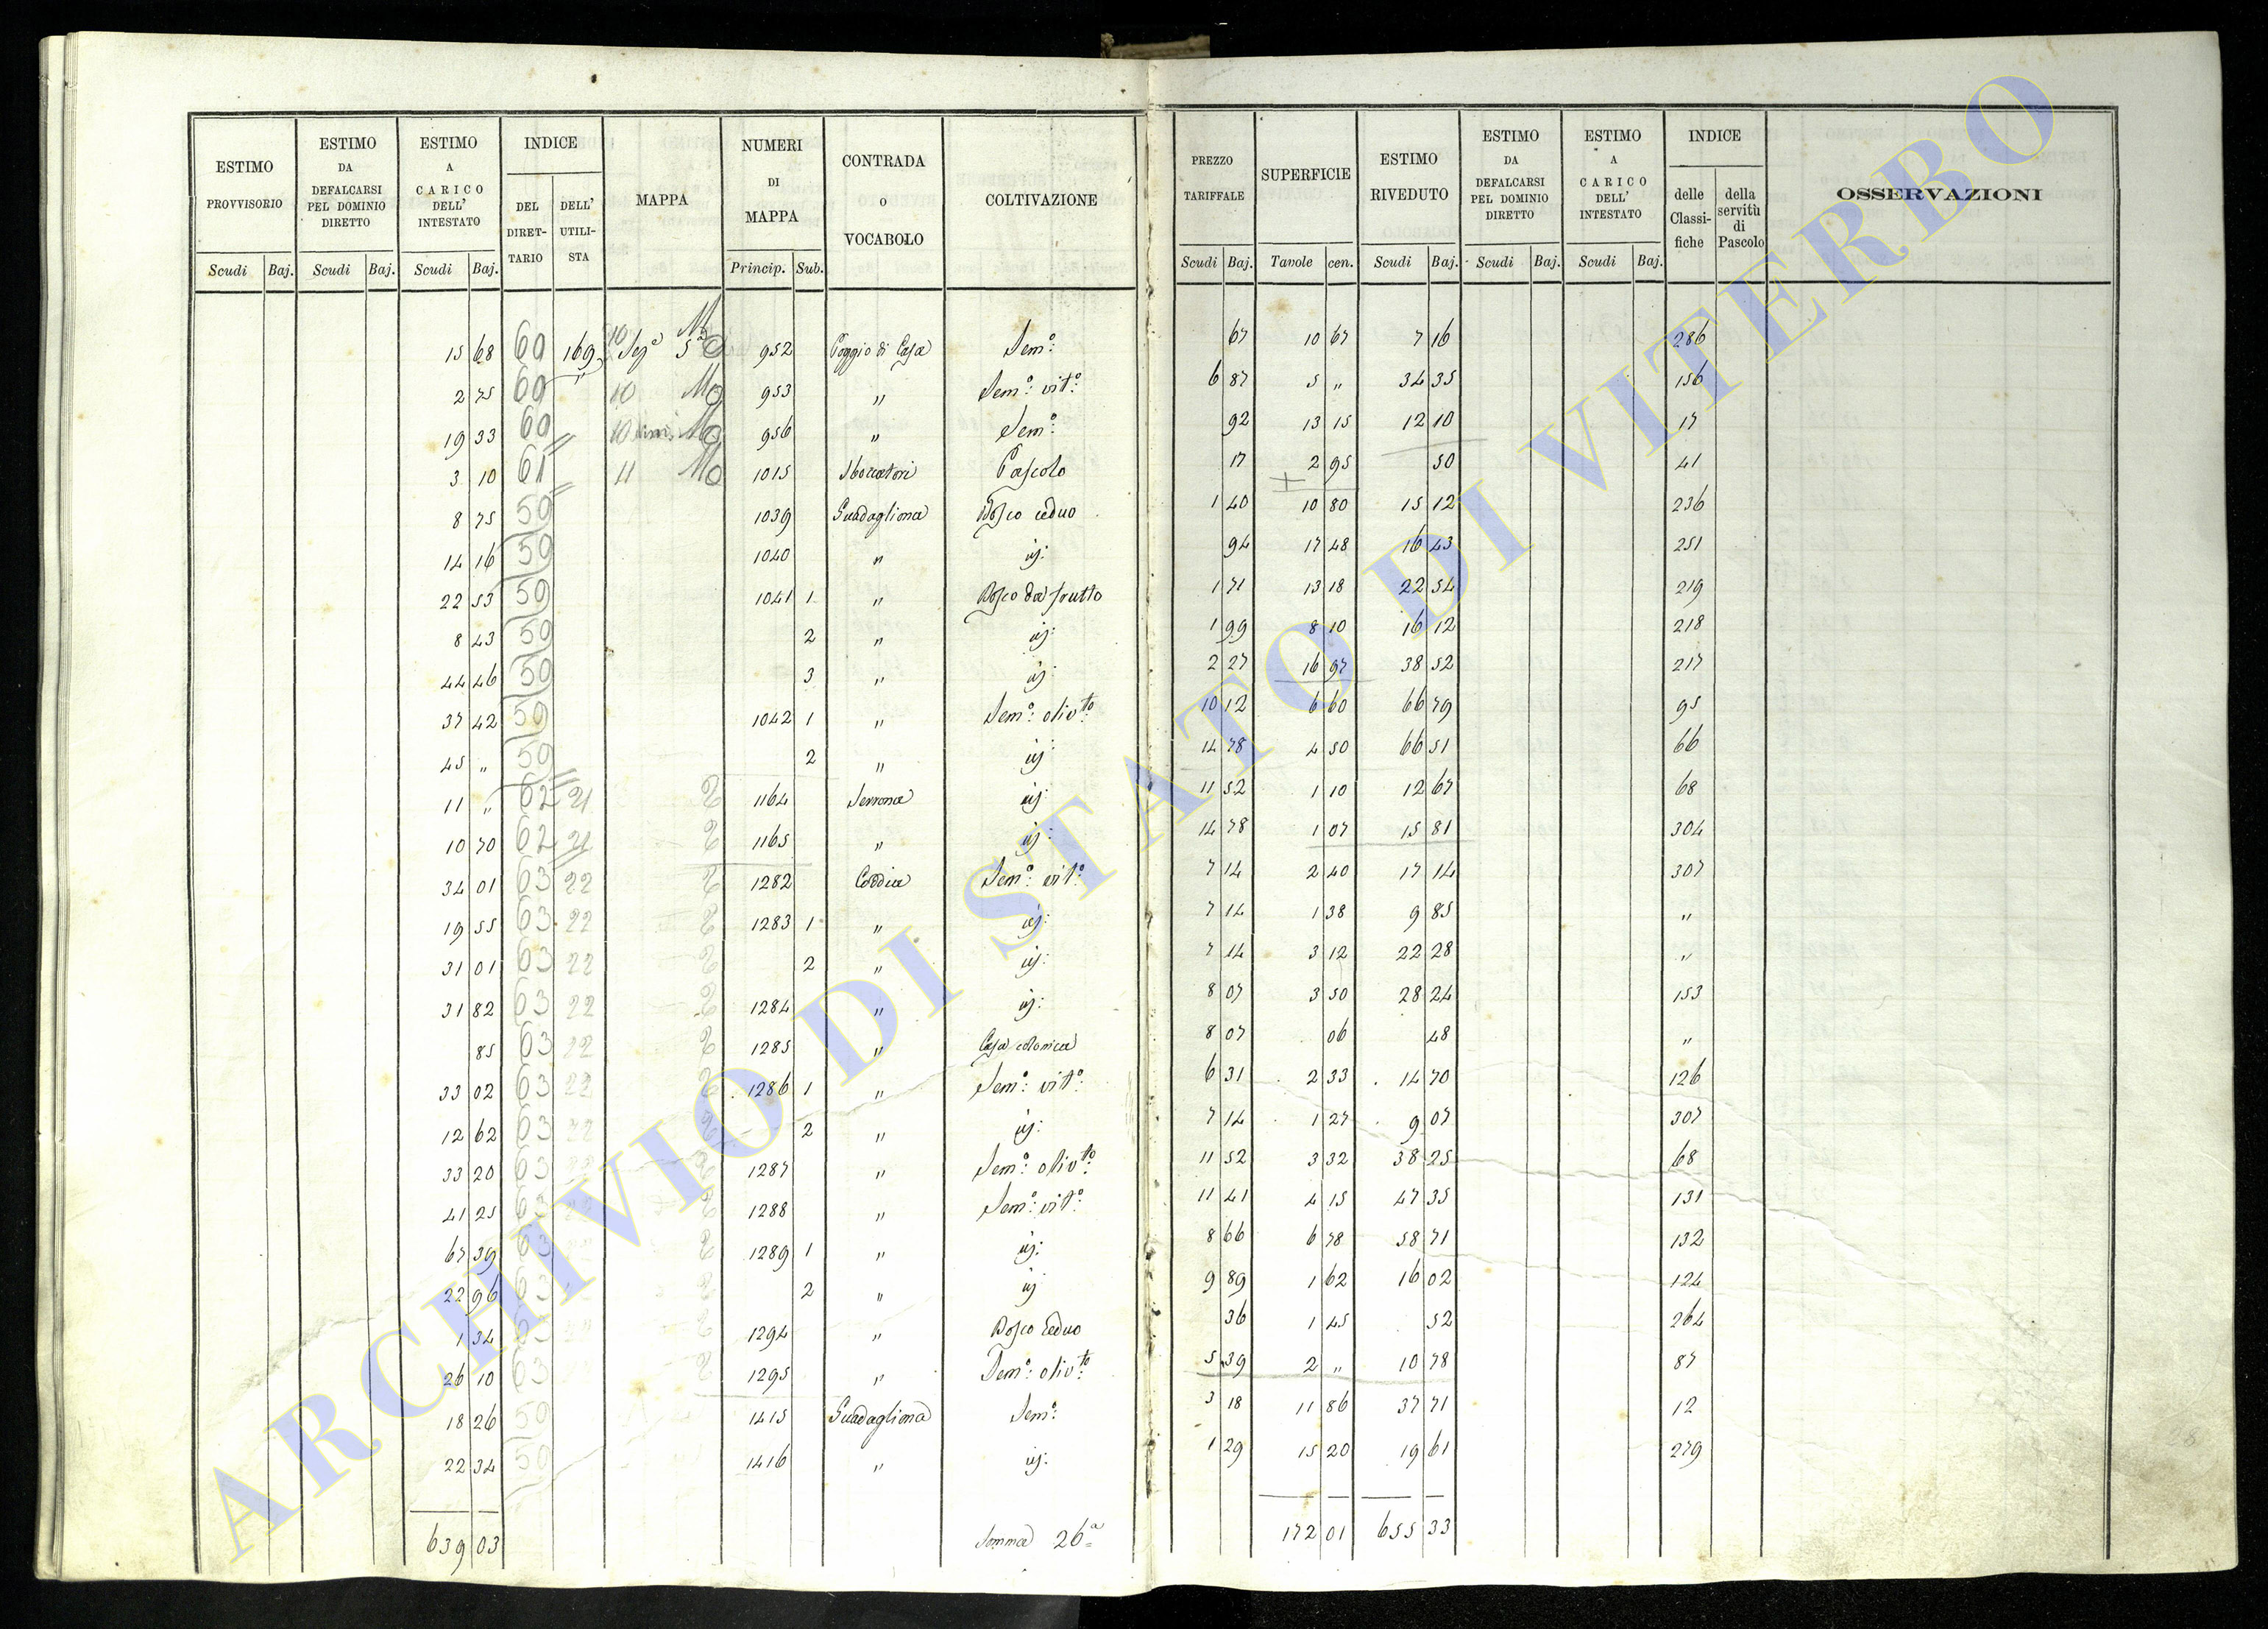 ESTIMO PROVVISORIO | ESTIMO DA DEFALCARSI PEL DOMINIO DIRETTO | ESTIMO A CARICO DELL' INTESTATO | INDICE DEL DIRETTARIO | DELL' UTILISTA | MAPPA | NUMERI DI MAPPA | CONTRADA O VOCABOLO | COLTIVAZIONE | PREZZO TARIFFALE | SUPERFICIE | ESTIMO RIVEDUTO | ESTIMO DA DEFALCARSI PEL DOMINIO DIRETTO | ESTIMO A CARICO DELL' INTESTATO | INDICE delle Classifiche | della servitù di Pascolo | OSSERVAZIONI
Scudi Baj. | Scudi Baj. | Scudi Baj. | Princip. Sub. | Scudi Baj. | Tavole cen. | Scudi Baj. | Scudi Baj. | Scudi Baj.
15 68 60 169 10 Sez.e 5a 952 Poggio di Casa Sem.o 67 10 67 7 16 286
2 75 60 " 10 953 " Sem.o vit.o 6 87 5 " 34 35 156
19 33 60 10 956 " Sem.o 92 13 15 12 10 17
3 10 61 11 1015 Sboccatori Pascolo 17 2 95 50 41
8 75 59 1039 Guadagliona Bosco ceduo 1 40 10 80 15 12 236
14 16 59 1040 " id: 94 17 48 16 43 251
22 53 59 1041 1 " Bosco da frutto 1 71 13 18 22 54 219
8 43 59 2 " id: 1 99 8 10 16 12 218
44 46 59 3 " id: 2 27 16 97 38 52 217
37 42 59 1042 1 " Sem.o oliv.to 10 12 6 60 66 79 95
45 " 59 2 " id: 14 78 4 50 66 51 66
11 " 62 21 2 1164 Serrona id: 11 52 1 10 12 67 68
10 70 62 21 2 1165 " id: 14 78 1 07 15 81 304
34 01 63 22 2 1282 Sem.o vit.o 7 14 2 40 17 14 307
19 55 63 22 2 1283 1 " id: 7 14 1 38 9 85 "
31 01 63 22 2 2 " id: 7 14 3 12 22 28 "
31 82 63 22 2 1284 " id: 8 07 3 50 28 24 153
85 63 22 2 1285 " Casa colonica 8 07 06 48 "
33 02 63 22 2 1286 1 " Sem.o vit.o 6 31 2 33 14 70 126
12 62 63 22 2 2 " id: 7 14 1 27 9 07 307
33 20 63 22 2 1287 " Sem.o oliv.to 11 52 3 32 38 25 68
41 25 63 22 2 1288 " Sem.o vit.o 11 41 4 15 47 35 131
67 39 63 2 1289 1 " id: 8 66 6 78 58 71 132
22 96 63 2 2 " id: 9 89 1 62 16 02 124
1 34 63 2 1294 " Bosco ceduo 36 1 45 52 264
26 10 63 2 1295 " Sem.o oliv.to 5 39 2 " 10 78 87
18 26 59 1415 Guadagliona Sem.o 3 18 11 86 37 71 12
22 34 59 1416 " id: 1 29 15 20 19 61 279
639 03 Somma 26a 172 01 655 33
28
ARCHIVIO DI STATO DI VITERBO